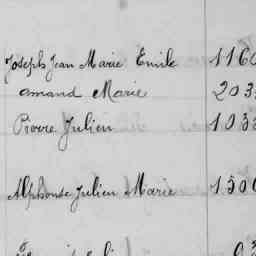 Joseph Jean Marie Emile 1160
Amand Marie 203
Pierre Julien 103
Alphonse Julien Marie 1500